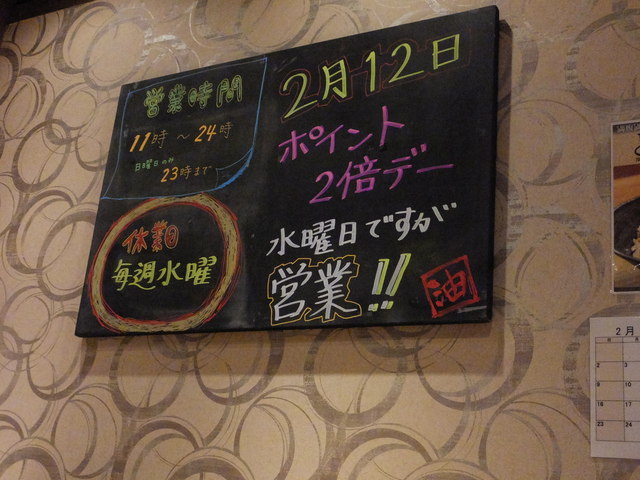 営業時間
11時～24時
日曜日のみ
23時まで
休業日
毎週水曜
2月12日
ポイント
2倍デー
水曜日ですが
営業!!
油
2月
日 月
2 3
9 10
16 17
23 24